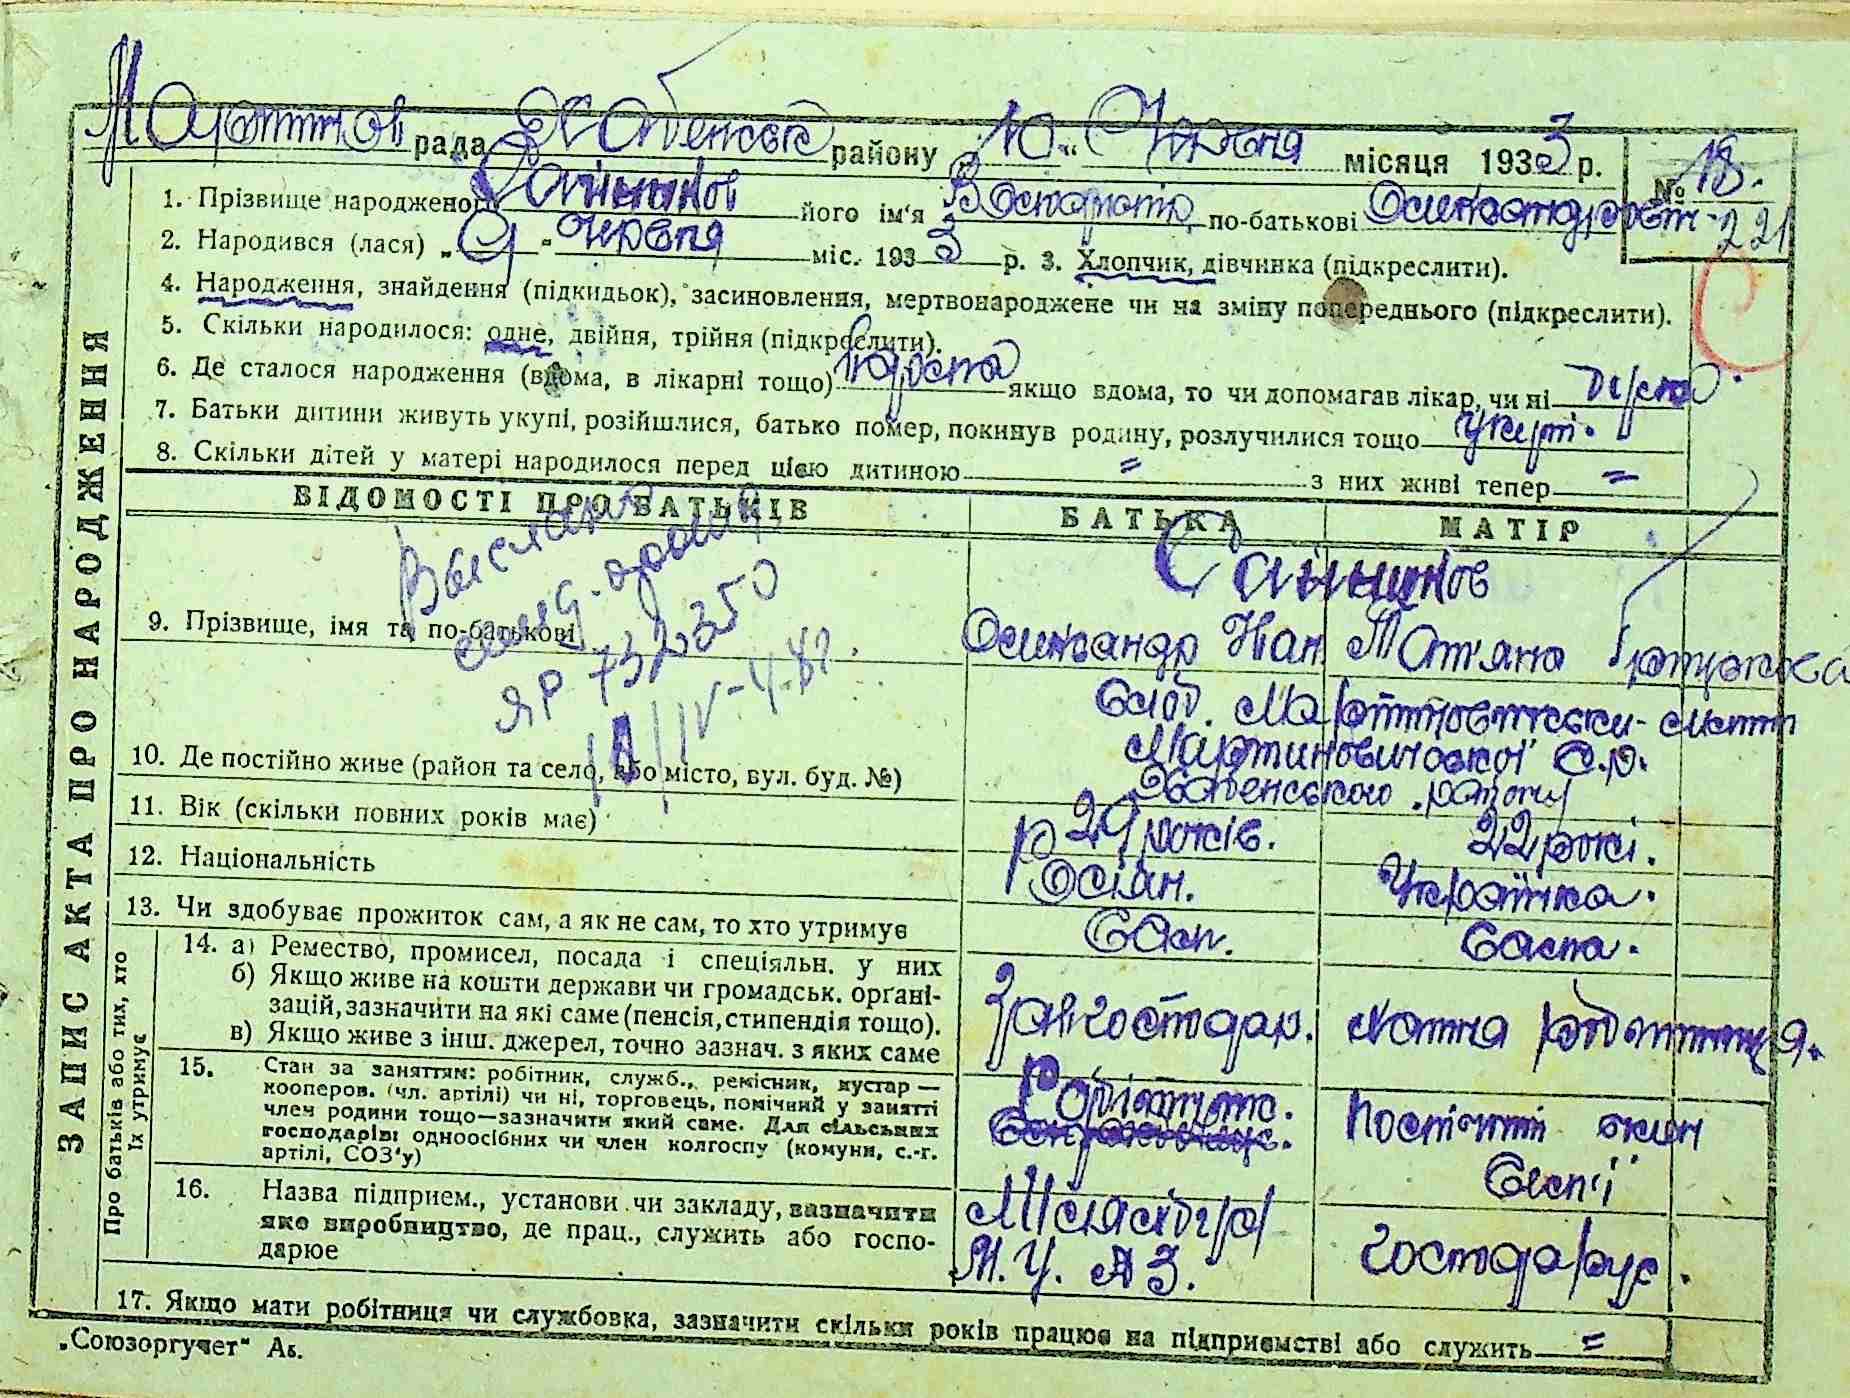 Мартинов рада Хабенськ району „10" Червня місяця 1933 р.
№ 18.
221
1. Прізвище народженого Санников його ім'я по-батькові
2. Народився (лася) „9" Червня міс. 1933 р. 3. Хлопчик, дівчинка (підкреслити).
4. Народження, знайдення (підкидьок), засиновлення, мертвонароджене чи на зміну попереднього (підкреслити).
5. Скільки народилося: одне, двійня, трійня (підкреслити).
6. Де сталося народження (вдома, в лікарні тощо) якщо вдома, то чи допомагав лікар, чи ні
7. Батьки дитини живуть укупі, розійшлися, батько помер, покинув родину, розлучилися тощо укупі.
8. Скільки дітей у матері народилося перед цією дитиною = з них живі тепер =
ЗАПИС АКТА ПРО НАРОДЖЕННЯ
ВІДОМОСТІ ПРО БАТЬКІВ БАТЬКА МАТІР
ЯР 732350
Санников
9. Прізвище, імя та по-батькові Олександр Іван Тат'яна
слоб. Мартиновичськи
Мартиновичовської С.р.
10. Де постійно живе (район та село, або місто, вул. буд. №) Хабенського району
11. Вік (скільки повних років має) 29 років. 22 рокі.
12. Національність Росіян. Українка.
13. Чи здобуває прожиток сам, а як не сам, то хто утримує Сам. Сама.
Про батьків або тих, хто їх утримує
14. а) Ремество, промисел, посада і спеціяльн. у них
б) Якщо живе на кошти держави чи громадськ. орґані-
зацій, зазначити на які саме (пенсія, стипендія тощо).
в) Якщо живе з інш. джерел, точно зазнач. з яких саме
хатня робітниця.
15. Стан за заняттям: робітник, служб., ремісник, кустар —
кооперов. (чл. артілі) чи ні, торговець, помічний у занятті
член родини тощо—зазначити який саме. Для сільських
господарів: одноосібних чи член колгоспу (комуни, с.-г.
артілі, СОЗ'у)
Робітник.
16. Назва підприєм., установи чи закладу, зазначити
яке виробництво, де прац., служить або госпо-
дарює
М. У. АЗ. господарує.
17. Якщо мати робітниця чи службовка, зазначити скільки років працює на підприємстві або служить =
„Союзоргучет" Аб.